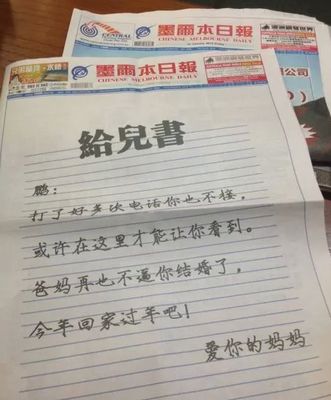 CENTRAL
墨爾本日報
CHINESE MELBOURNE DAILY
墨爾本日報
CHINESE MELBOURNE DAILY
給兒書
鹏:
打了好多次电话你也不接,
或许在这里才能让你看到。
爸妈再也不逼你结婚了,
今年回家过年吧!
爱你的妈妈